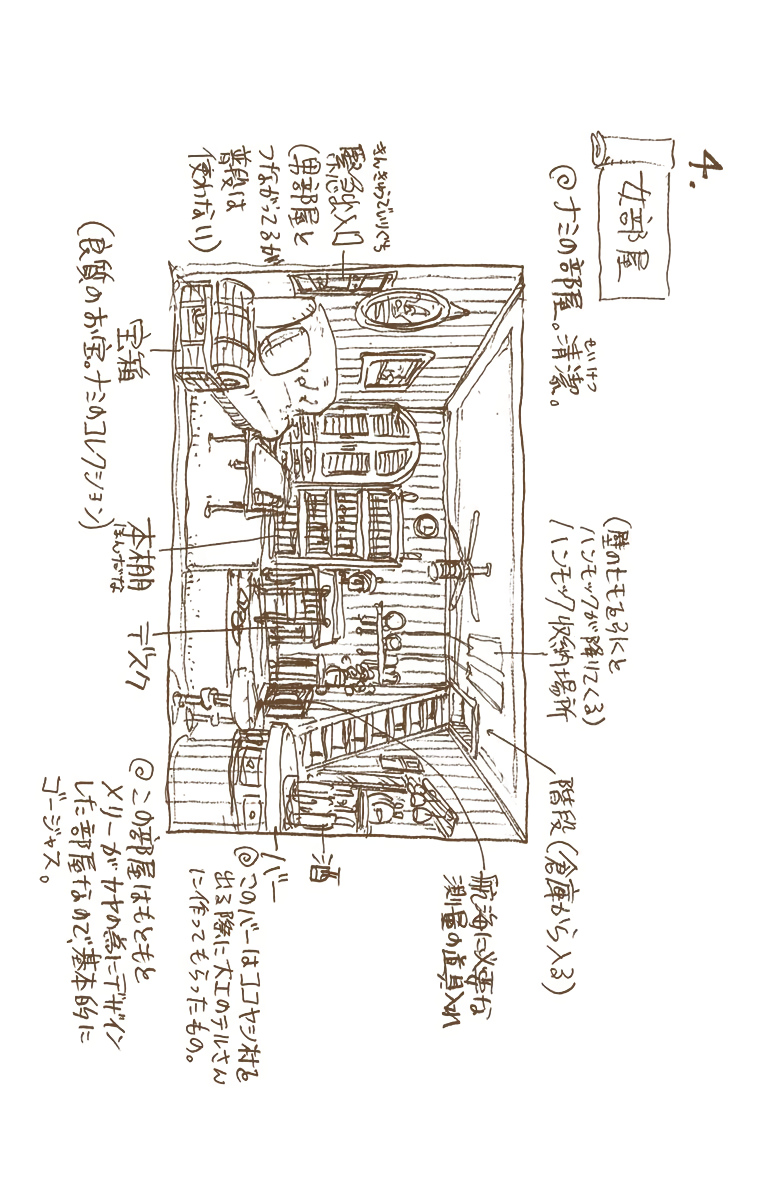 4.
女部屋
◎ナミの部屋。清潔。
せいけつ
きんきゅうでいりぐち
緊急出入口
(男部屋と
つながってるが
普段は
使わない)
(壁のヒモを引くと
ハンモックが降りてくる)
ハンモック収納場所
階段(倉庫から入る)
宝箱
(良質のお宝。ナミのコレクション)
本棚
ほんだな
デスク
バー
酒
航海に必要な
測量の道具入れ
◎このバーはココヤシ村を
出る際に大工のテルさん
に作ってもらったもの。
◎この部屋はもともと
メリーがカヤの為にデザイン
した部屋なので、基本的に
ゴージャス。